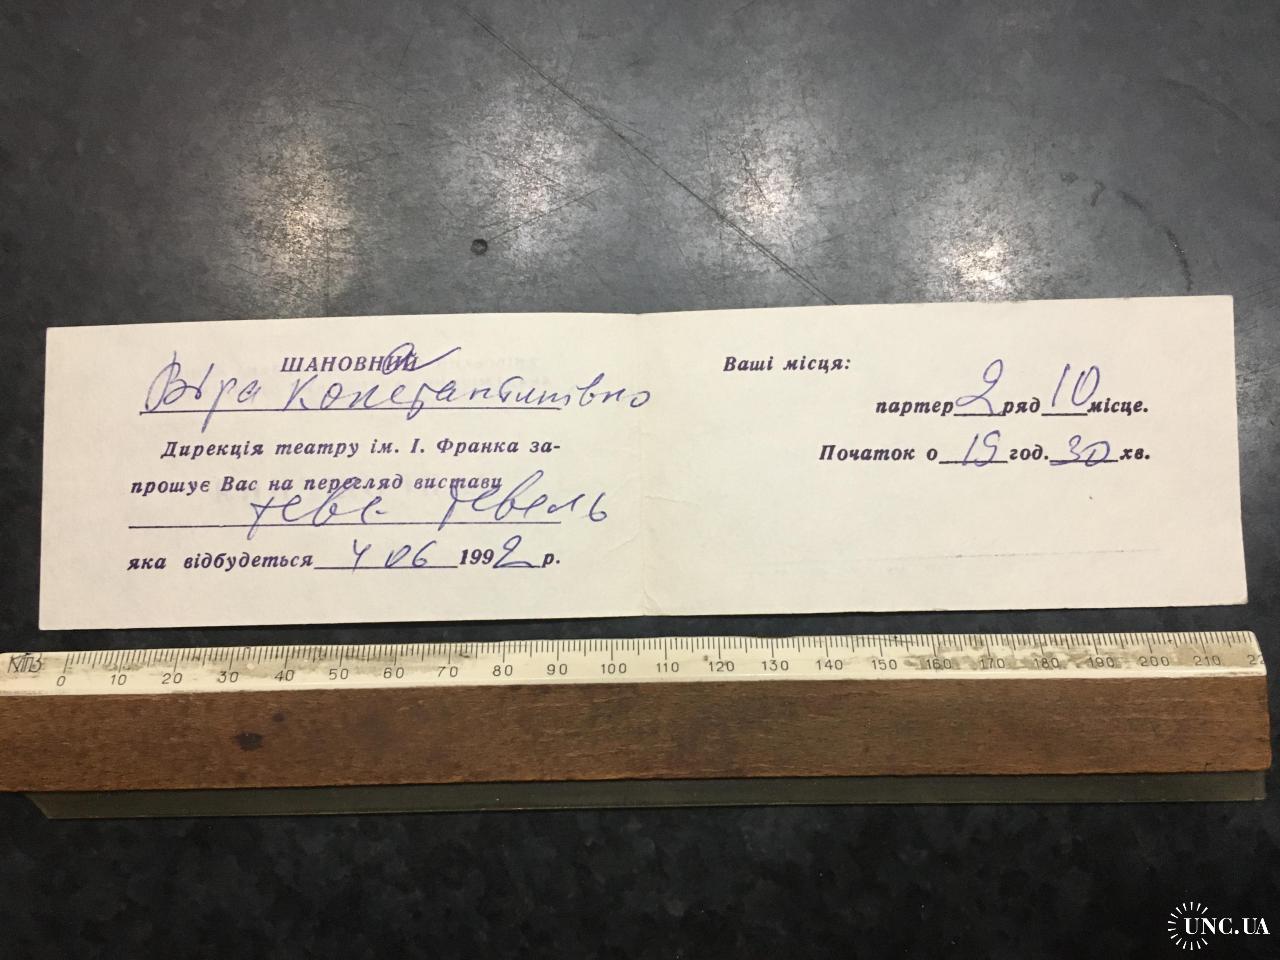 ШАНОВНа
Віра Константинівно
Дирекція театру ім. І. Франка за-
прошує Вас на перегляд вистави
Тевє Тевель
яка відбудеться 4 06 1992 р.
Ваші місця:
партер 2 ряд 10 місце.
Початок о 19 год. 30 хв.
КТПЗ
0 10 20 30 40 50 60 70 80 90 100 110 120 130 140 150 160 170 180 190 200 210 22
UNC.UA